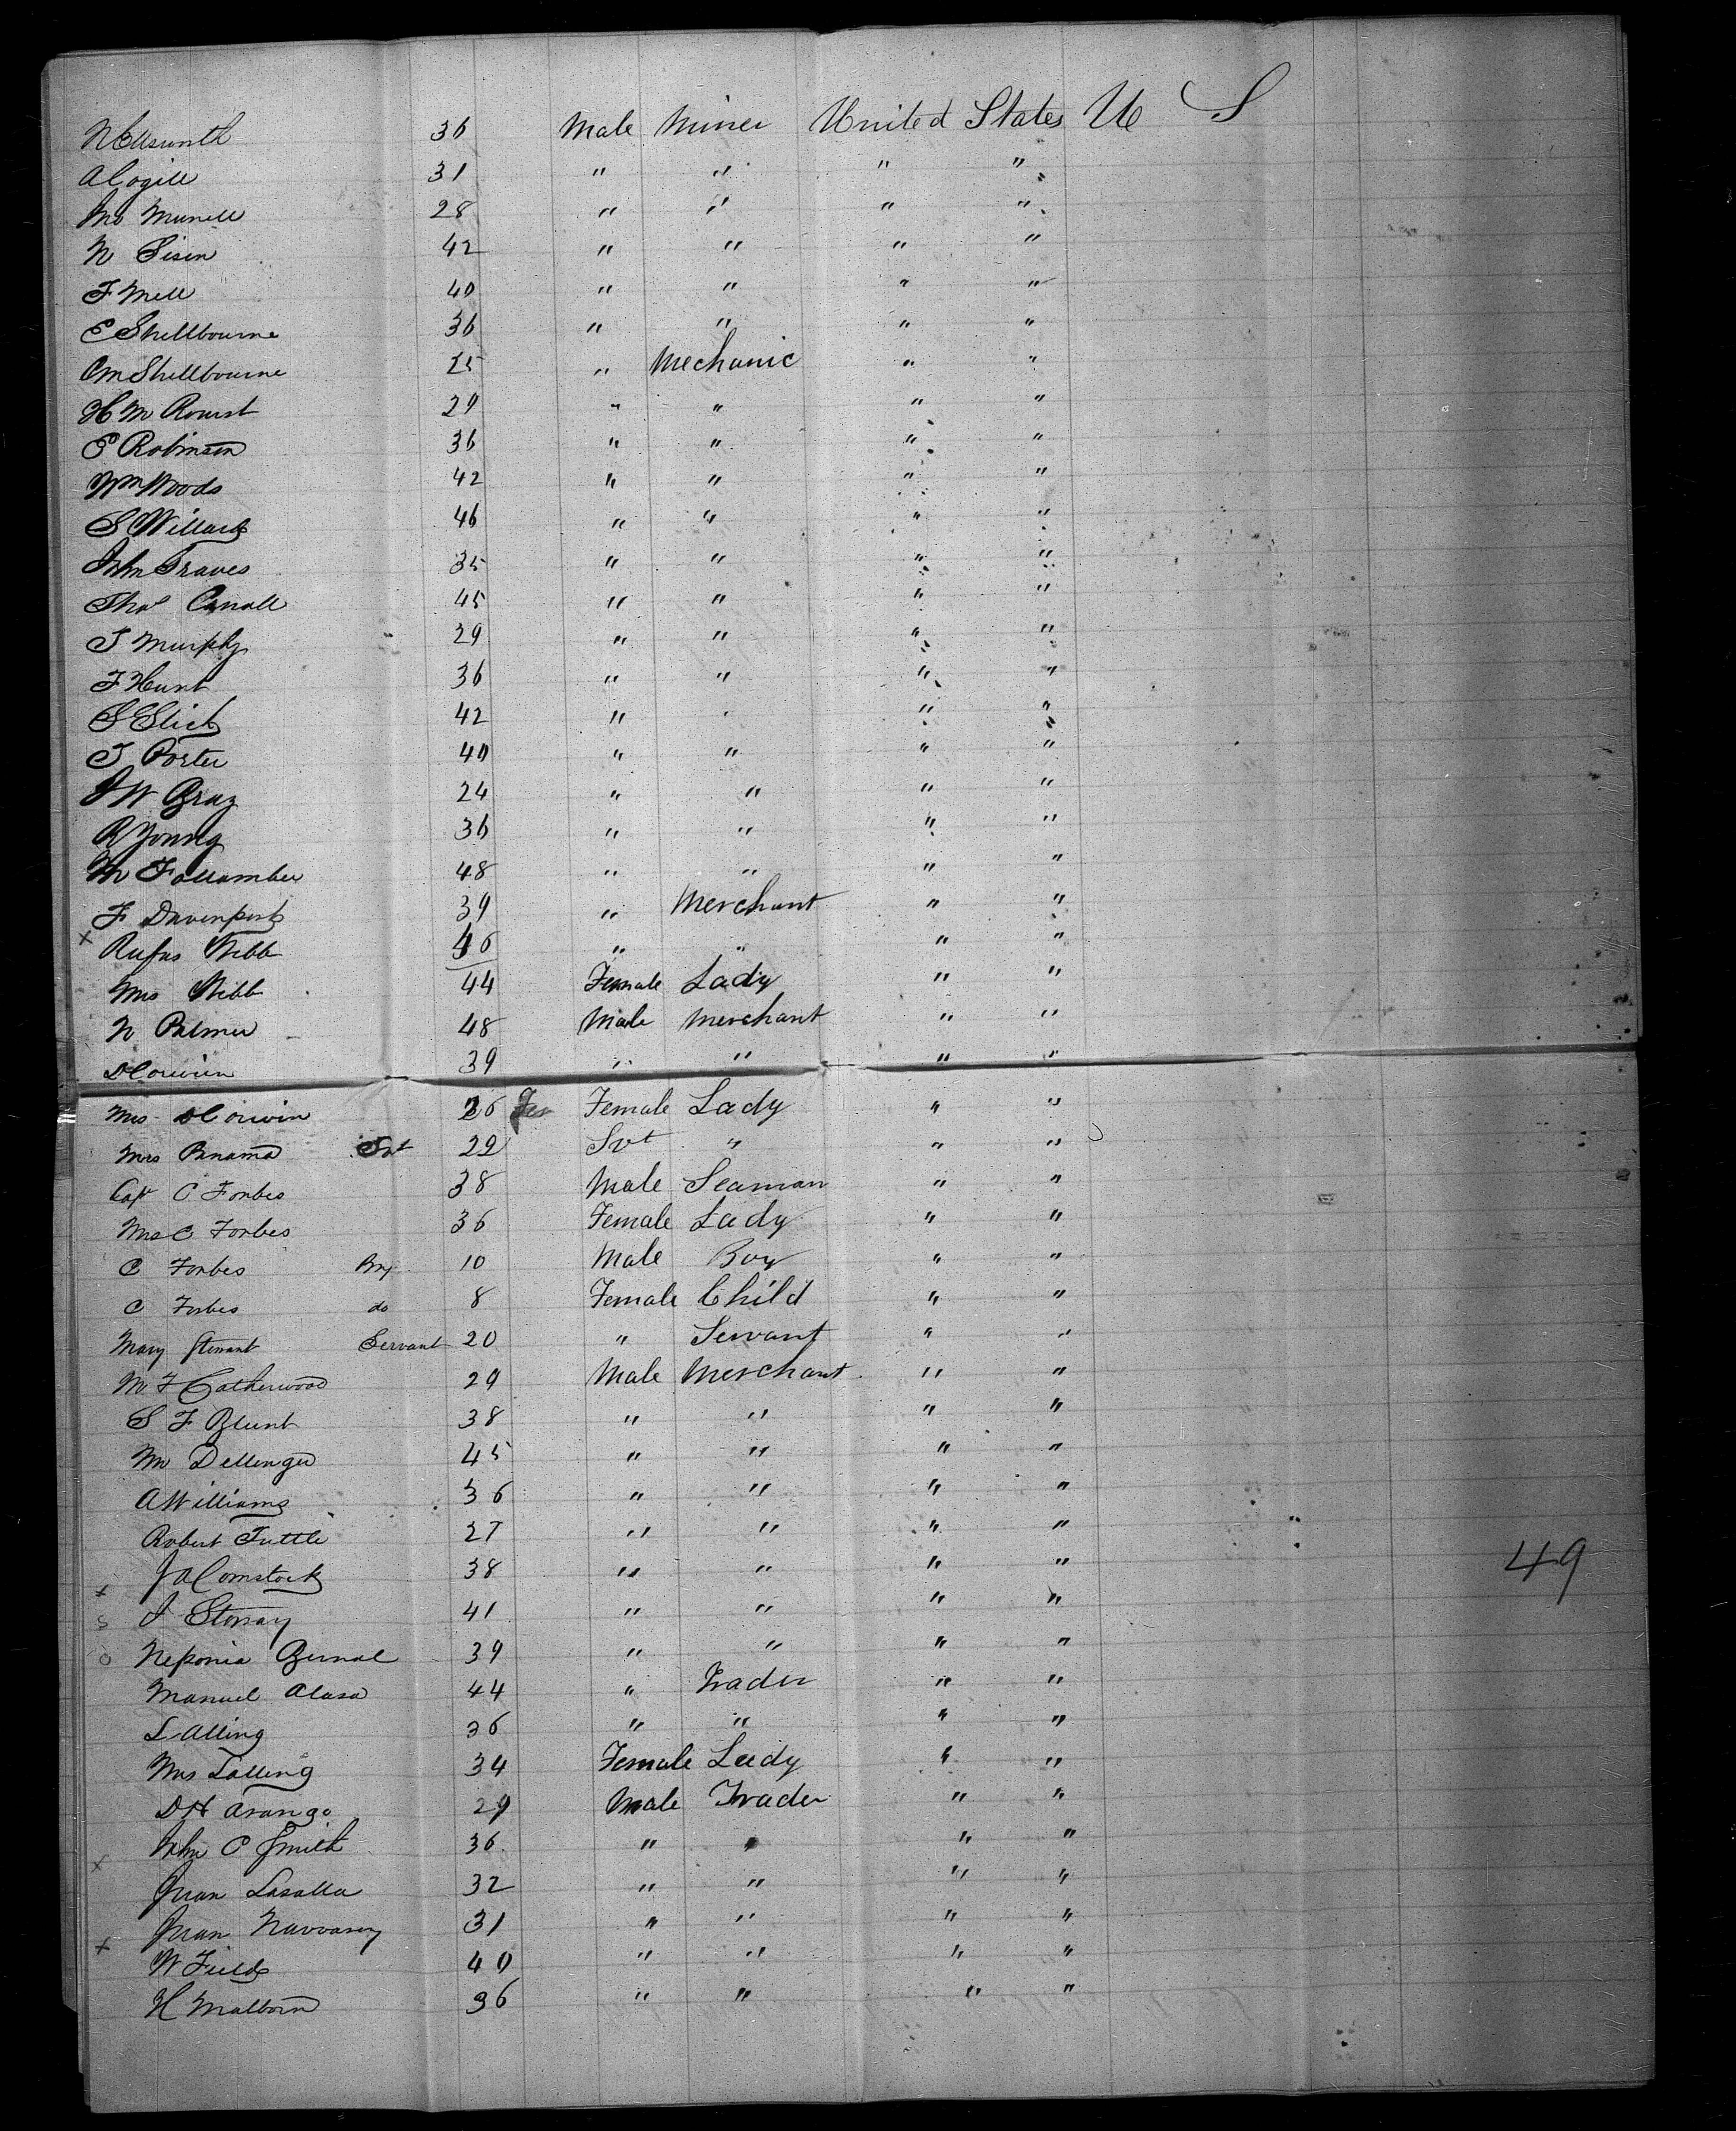 N Ellsworth 36 Male Miner United States U S
A Cogill 31 " " " "
28 " " " "
N Sisen 42 " " " "
F Mell 40 " " " "
E Shellbourne 36 " " " "
Shellbourne 25 " Mechanic " "
H M 29 " " " "
E Robinson 36 " " " "
Wm Woods 42 " " " "
S Willard 46 " " " "
John Graves 35 " " " "
Thos 45 " " " "
J Murphy 29 " " " "
F Hunt 36 " " " "
S 42 " " " "
J Porter 40 " " " "
J W Gray 24 " " " "
R Young 36 " " " "
48 " " " "
F Davenport 39 " Merchant " "
x Rufus Webb 46 " " " "
Mrs Webb 44 Female Lady " "
N Palmer 48 Male Merchant " "
D Corwin 39 " " " "
Mrs D Corwin 26 Fe Female Lady " "
Mrs Panama Svt 22 Svt " " "
Cap C Forbes 38 Male Seaman " "
Mrs C Forbes 36 Female Lady " "
C Forbes Boy 10 Male Boy " "
C Forbes do 8 Female Child " "
Mary Stewart Servant 20 " Servant " "
M F Catherwood 29 Male Merchant " "
S F Blunt 38 " " " "
M Dellinger 45 " " " "
A Williams 36 " " " "
Robert Tuttle 27 " " " "
J A Comstock 38 " " " " 49
x J 41 " " " "
Bernal 39 " " " "
Manuel 44 " Trader " "
L Alling 36 " " " "
Mrs L Alling 34 Female Lady " "
D H Arango 29 Male Trader " "
John C Smith 36 " " " "
x Juan Lasalla 32 " " " "
Juan 31 " " " "
x W Fields 40 " " " "
H Malborn 36 " " " "